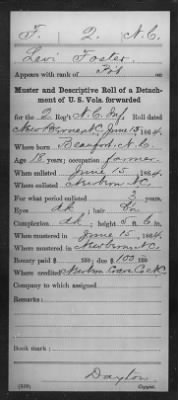 F. 2 N.C.
Levi Foster
Appears with rank of Pvt on
Muster and Descriptive Roll of a Detach-
ment of U. S. Vols. forwarded
for the 2 Reg't N.C. Inf. Roll dated
New Berne N.C. June 15 1864.
Where born Beaufort, N.C.
Age 18 years; occupation farmer
When enlisted June 15, 1864.
Where enlisted Newbern N.C.
For what period enlisted 3 years.
Eyes dk; hair
Complexion dk; height 5 ft. 6 in.
When mustered in June 15, 1864.
Where mustered in Newbern N.C.
Bounty paid $ 100; due $ 100
Where credited Newbern Craven Co N.C.
Company to which assigned
Remarks:
Book mark:
Dayton
Copyist.